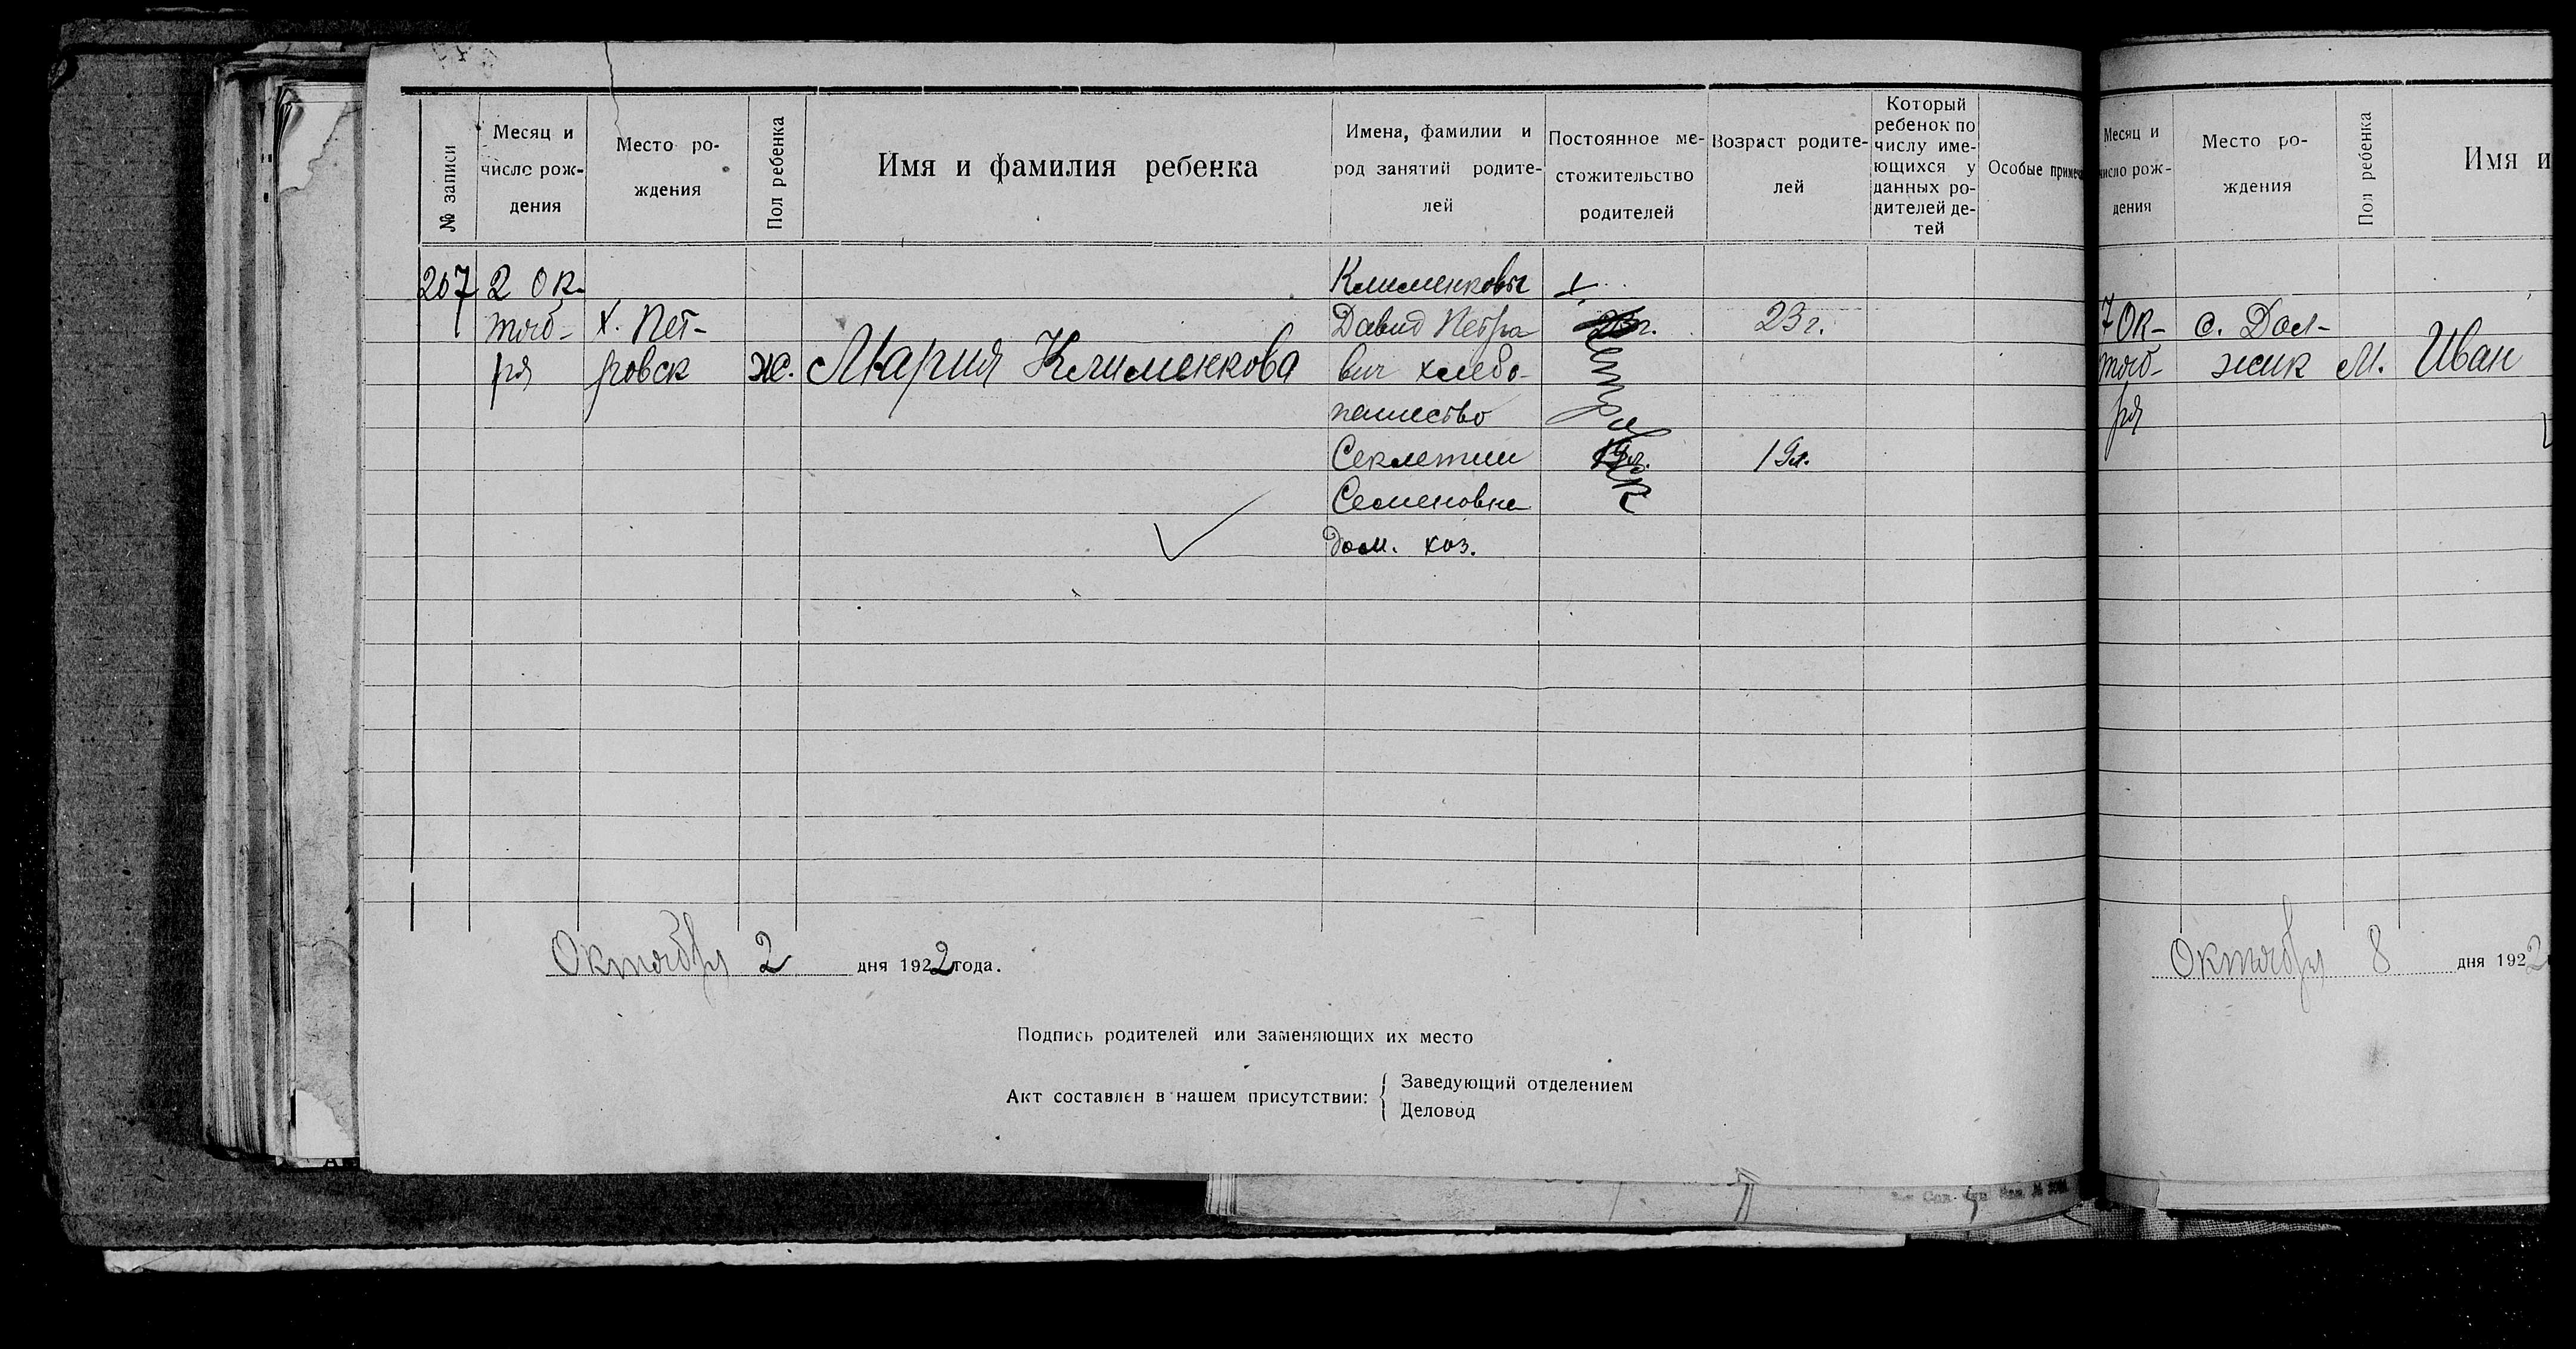 № записи
Месяц и
число рож-
дения
Место ро-
ждения
Пол ребенка
Имя и фамилия ребенка
Имена, фамилии и
род занятий родите-
лей
Постоянное ме-
стожительство
родителей
Возраст родите-
лей
Который
ребенок по
числу име-
ющихся у
данных ро-
дителей де-
тей
Особые примеч
207
2 Ок-
тяб-
ря
х. Пет-
ровск
ж.
Мария Клименкова
Клименковы
Давид Петро
вич хлебо-
пашество
Секлетии
Семеновна
дом. хоз.
х. Петровск
23 г.
19 л.
Октября 2 дня 1922 года.
Подпись родителей или заменяющих их место
Акт составлен в нашем присутствии:
Заведующий отделением
Деловод
Месяц и
число рож-
дения
Место ро-
ждения
Пол ребенка
Имя и
7 Ок-
тяб-
ря
с. Дол-
жик
М.
Иван
Октября 8 дня 1922